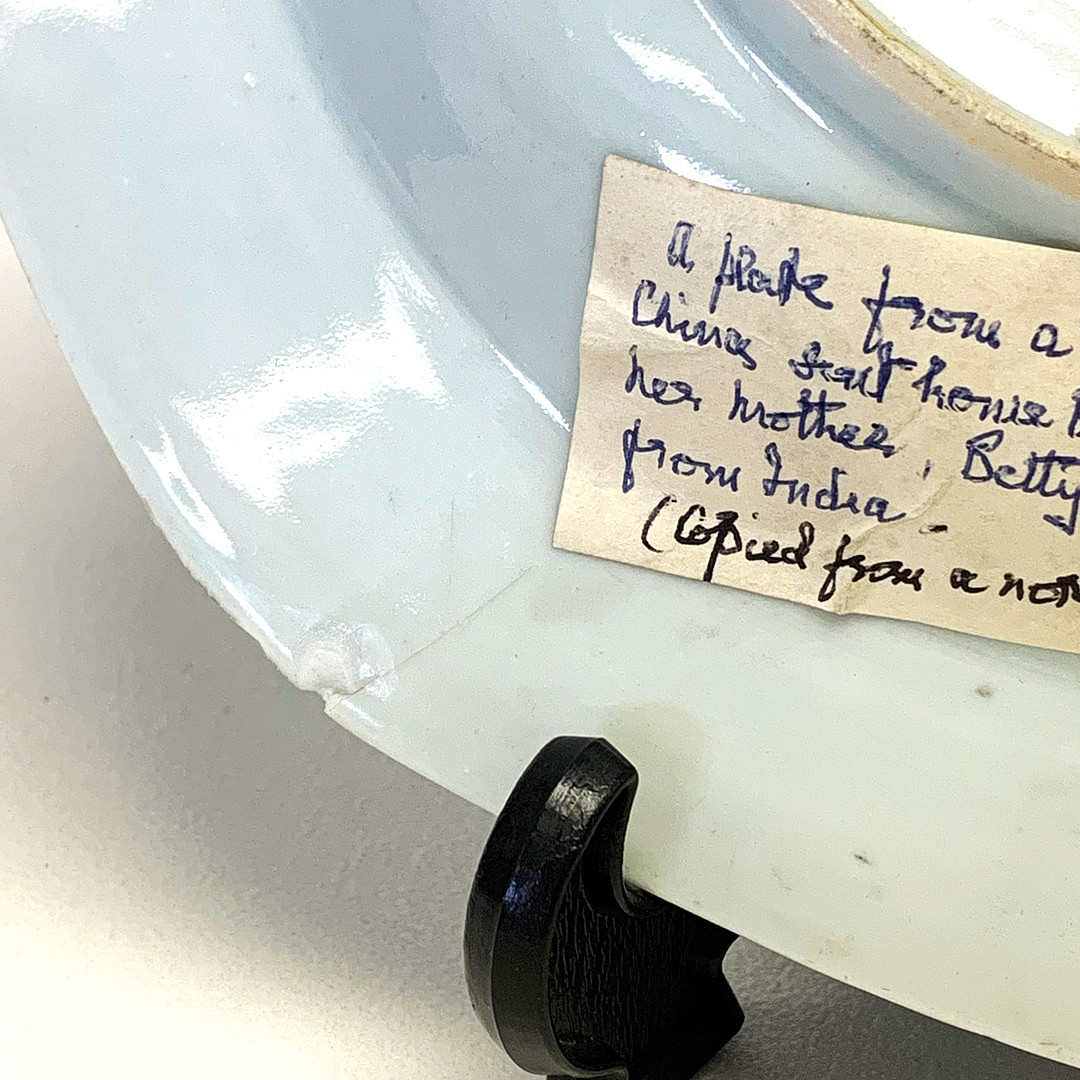 a plate from a
China sent home b
her mother, Betty
from India -
(Copied from a not